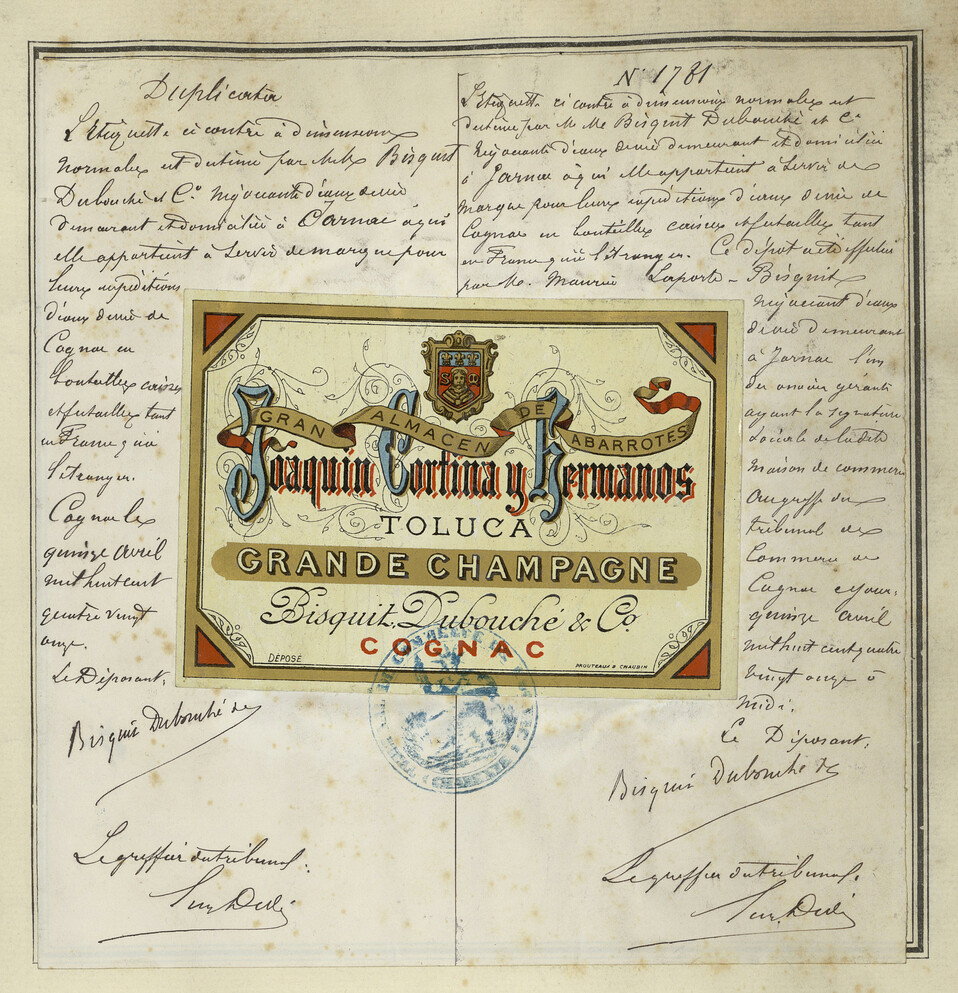 Duplicata
L'Etiquette ci contre à dimensions
normales est destinée par M.M. Bisquit
Dubouché et Cº négociants d'eaux de vie
demeurant et domiciliés à Jarnac à qui
elle appartient à servir de marque pour
leurs expéditions
d'eaux de vie de
Cognac en
bouteilles caisses
et futailles tant
en France qu'à
l'étranger.
Cognac le
quinze avril
mil huit cent
quatre vingt
onze.
Le Déposant,
Bisquit Dubouché &
Le greffier du tribunal.
Nº 1781
L'Etiquette ci contre à dimensions normales est
destinée par M.M. Bisquit Dubouché et Cº
négociants d'eaux de vie demeurant et domiciliés
à Jarnac à qui elle appartient à servir de
marque pour leurs expéditions d'eaux de vie de
Cognac en bouteilles caisses et futailles tant
en France qu'à l'étranger. Ce dépot a été effectué
par M. Maurice Laporte-Bisquit
négociant d'eaux
de vie demeurant
à Jarnac l'un
des associés gérants
ayant la signature
sociale de la dite
maison de commerce
au greffe du
tribunal de
Commerce de
Cognac ce jour
quinze avril
mil huit cent quatre
vingt onze à
midi.
Le Déposant,
Bisquit Dubouché &
Le greffier du tribunal.
GRAN ALMACEN DE ABARROTES
Joaquin Cortina y Hermanos
TOLUCA
GRANDE CHAMPAGNE
Bisquit, Dubouché & Co.
COGNAC
DÉPOSÉ
PROUTEAUX & CHAUDIN